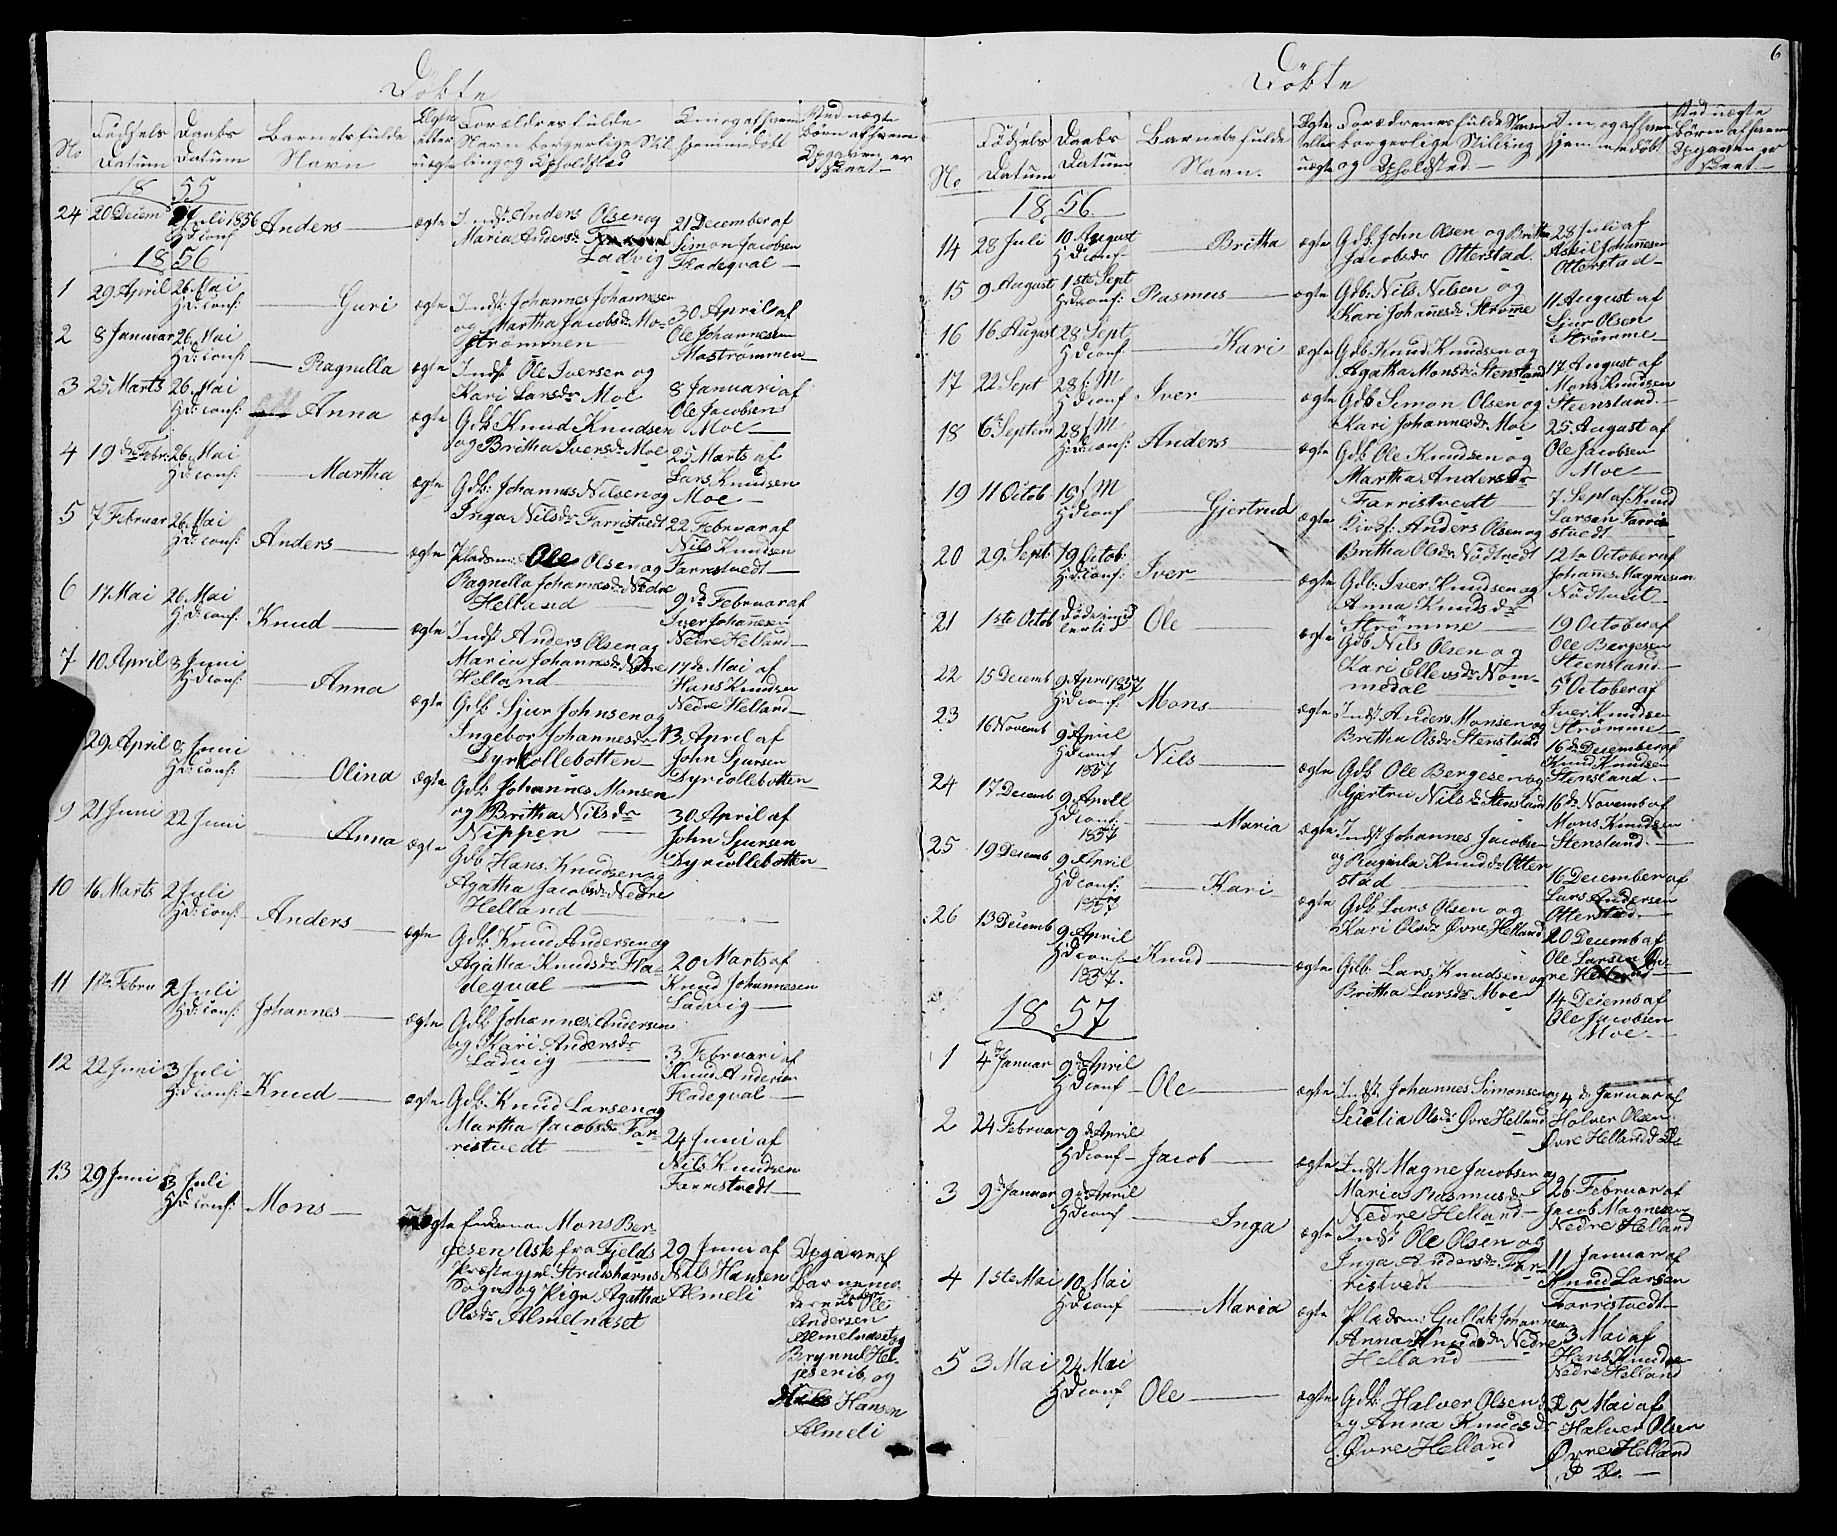 Döbte
No
Födsels Datum
Daabs Datum
Barnets fulde Navn
Ægte eller uægte
Forældres fulde Navn borgerlige Stilling og Opholdsted
Om og af hvem hjemmedöbt
Ved uægte börn af hvem Opgaven er skeet
1855
24 20 Decem 2 Juli 1856 Hd: conf Anders ægte Indst: Anders Olsen og Maria Andersdr Ladvig 21 December af Simon Jacobsen Fladeqval
1856
1 29 April 26 Mai Hd: conf: Guri ægte Indst: Johannes Johannesen og Martha Jacobsdr Mostrømmen 30 April af Ole Johannesen Mostrømmen
2 8 Januar 26 Mai Hd: conf: Ragnilla ægte Indst Ole Iversen og Kari Larsdr Moe 8 Januari af Ole Jacobsen Moe
3 25 Marts 26 Mai Hd: conf: Anna ægte Gdb: Knud Knudsen og Britha Iversdr Moe 25 Marts af Lars Knudsen Moe
4 19 de Febr: 26 Mai Hd: conf: Martha ægte Gdb: Johannes Nilsen og Inga Nilsdr Farristvedt 22 Februar af Nils Knudsen Farrestvedt
5 7 Februar 26 Mai Hd: conf: Anders ægte Pladsm: Ole Olsen og Ragnilla Johannesdr Nedre Helland 9 de Februar af Iver Johannesen Nedre Helland
6 17 Mai 26 Mai Hd: conf: Knud ægte Indst Anders Olsen og Maria Johannesdr Nedre Helland 17 de Mai af Hans Knudsen Nedre Helland
7 10 April 8 Juni Hd: conf: Anna ægte Gdb Sjur Johnsen og Ingebor Johannesdr Dyrkollebotten 13 April af John Sjursen Dyrcollebotten
29 April 8 Juni Hd: conf: Olina ægte Gdb Johannes Monsen og Britha Nilsdr Nippen 30 April af John Sjursen Dyrcollebotten
9 21 Juni 22 Juni Anna ægte Gdb Hans Knudsen og Agatha Jacobsdr Nedre Helland
10 16 Marts 2 Juli Hd: conf: Anders ægte Gdb: Knud Andersen og Agatha Knudsdr Fladeqval 20 Marts af Knud Johannesen Ladvig
11 1ste Febru 2 Juli Hd: conf: Johannes ægte Gdb Johannes Andersen og Kari Andersdr Ladvig 3 Februari af Knud Andersen Fladeqval
12 22 Juni 3 Juli Hd: conf: Knud ægte Gdb: Knud Larsen og Martha Jacobsdr Farristvedt 24 Juni af Nils Knudsen Farrestvedt
13 29 Juni 3 Juli Hd: conf: Mons uægte Mons Bergesen Ask fra Fjelds Præstegjeld Strudshavns Sogn og Pige Agatha Olsdr Almelnæset 29 Juni af Nils Hansen Almeli Opgave af Barnemoderens Fader Ole Andersen Almelnæset og og Nils Hansen Almeli
6
Döbte
No
Födsels Datum
Daabs Datum
Barnets fulde Navn.
Ægte eller uægte
Forældrenes fulde Navn borgerlige Stilling og Opholdsted
Om og af hvem hjemmedöbt
Ved uægte börn af hvem Opgaven er skeet
1856.
14 28 Juli 10 August Hd conf Britha ægte Gdb: John Olsen og Britha Jacobsdr Otterstad. 28 Juli af Askil Johannesen Otterstad
15 9 August 1ste Sept Hd: conf: Rasmus ægte Gdb: Nils Nilsen og Kari Johannesdr Strømme 11 August af Sjur Olsen Strømme
16 16 August 28 Sept Hd conf Kari ægte Gdb Knud Knudsen og Agatha Monsdr Stensland 17 August af Mons Knudsen Steensland
17 22 Sept 28 f: M Hd conf Iver ægte Gdb Simon Olsen og Kari Johannesdr Moe 25 August af Ole Jacobsen Moe
18 6 Septem 28 f: M Hd: conf: Anders ægte Gdb Ole Knudsen og Martha Andersdr Farristvedt 7 Sept af Knud Larsen Farristvedt
19 11 Octob 19 f: M Hd conf Gjertrud ægte Anders Olsen og Britha Olsdr Nödtvedt 12te October af Johannes Magnesen Nödtveit
20 29 Sept 19 Octob Hd: conf: Iver ægte Gdb: Iver Knudsen og Anna Knudsdr Strømme 19 October af Ole Bergesen Steensland
21 1ste Octob Ole ægte Gdb Nils Olsen og Kari Ellevsdr Nommedal 5 October af Iver Knudsen Strømme
22 15 Decemb 9 April 1857 Hd: conf: Mons ægte Indst Anders Monsen og Britha Olsdr Stensland 16 de December af Knud Knudsen Stensland.
23 16 Novemb 9 April Hd conf 1857 Nils ægte Gdb Ole Bergesen og Gjertru Nilsdr Stensland 16 de Novemb af Mons Knudsen Stensland
24 17 Decemb 9 April Hd: conf: 1857 Maria ægte Indst Johannes Jacobsen og Ragnila Knudsdr Otterstad 16 December af Lars Andersen Otterstad
25 19 Decemb 9 April Hd conf: 1857 Kari ægte Gdb: Lars Olsen og Kari Olsdr Øvre Helland 20 Decemb af Ole Larsen Øvre Helland
26 13 Decemb 9 April Hd: conf 1857. Knud ægte Gdb: Lars Knudsen og Britha Larsdr Moe 14 Decemb af Ole Jacobsen Moe
1857
1 4 de Januar 9 de April Hd conf Ole ægte Indst Johannes Simonsen og Scicilia Olsdr Øvre Helland 4 de Januar af Halver Olsen Øvre Helland
2 24 Februar 9 de April Hd conf Jacob ægte Indst Magne Jacobsen og Maria Rasmusdr Nedre Helland 26 Februar af Jacob Magnesen Nedre Helland
3 9 de Januar 9 de April Hd conf Inga ægte Indst Ole Olsen og Inga Andersdr Farristvedt 11 Januar af Knud Larsen Farristvedt
4 1ste Mai 10 Mai Hd conf Maria ægte Pladsm: Gullak Johannesen Anna Knudsdr Nedre Helland 3 Mai af Hans Knudsen Nedre Helland
5 3 Mai 24 Mai Hd conf Ole ægte Gdb: Halver Olsen og Anna Knudsdr Øvre Helland 5 Mai af Halver Olsen Øvre Helland